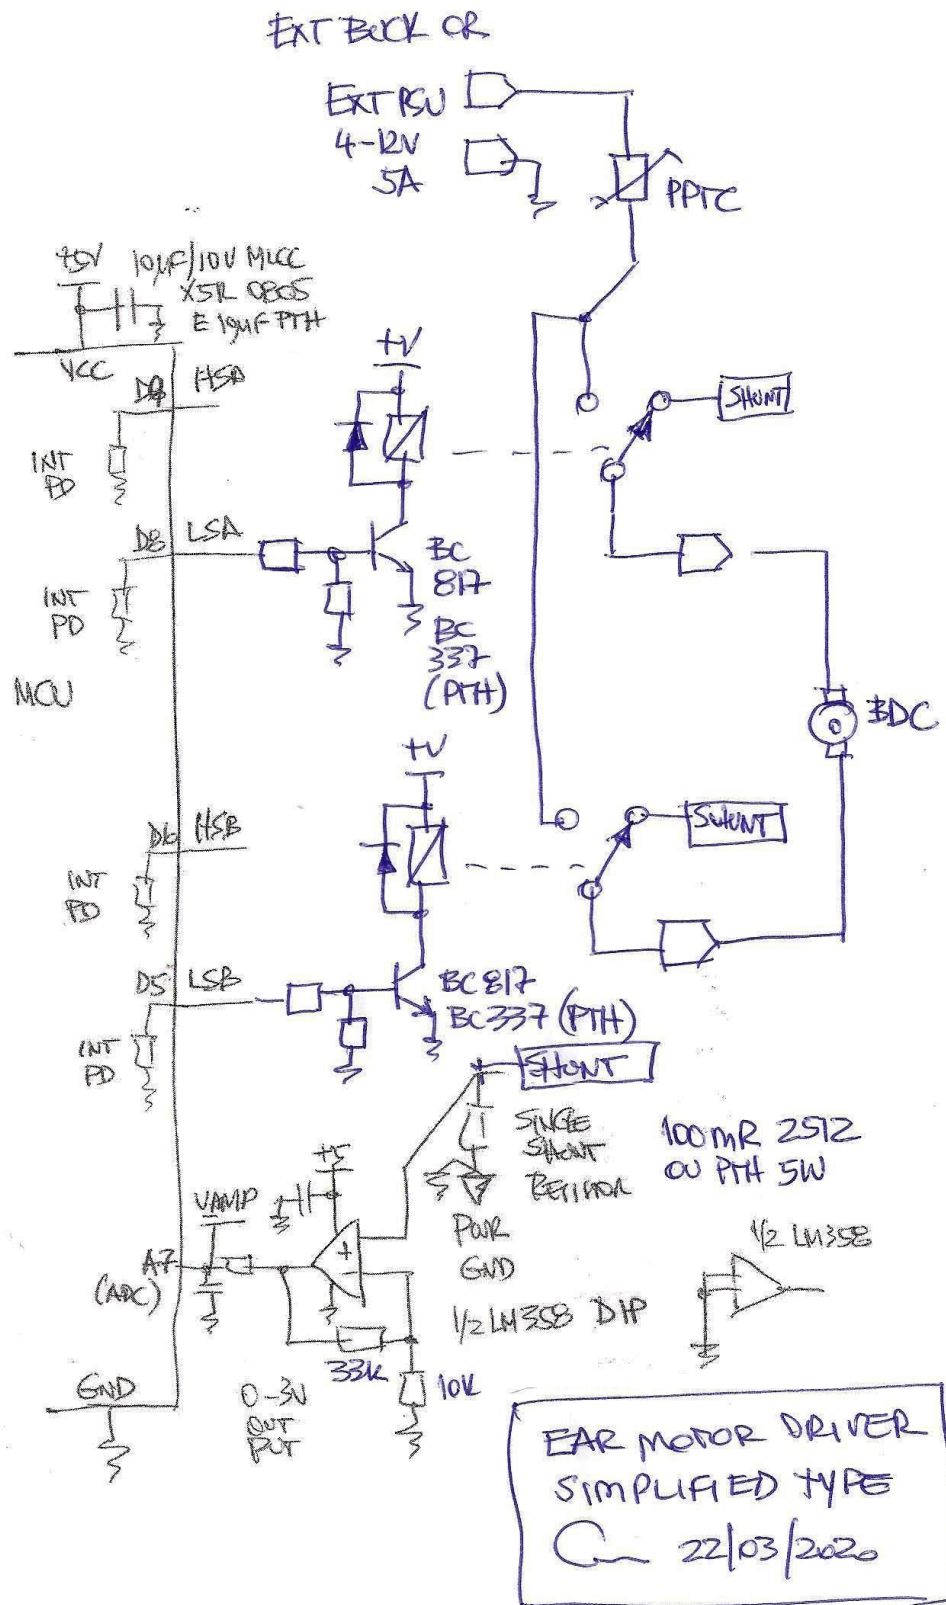 EXT BUCK OR
EXT PSU
4-12V
5A
PPTC
+5V
10µF/10V MLCC
X5R 0805
E 10µF PTH
VCC
D9
HSA
INT
PD
+V
SHUNT
D8
LSA
INT
PD
BC
817
BC
337
(PTH)
MCU
BDC
+V
D6
HSB
INT
PD
SHUNT
D5
LSB
INT
PD
BC817
BC337 (PTH)
SHUNT
SINGLE
SHUNT
100mR 2512
OU PTH 5W
+5
VAMP
PWR
GND
A7
(ADC)
+
1/2 LM358 DIP
1/2 LM358
33K
10K
GND
0-3V
OUT
PUT
EAR MOTOR DRIVER
SIMPLIFIED TYPE
22/03/2020